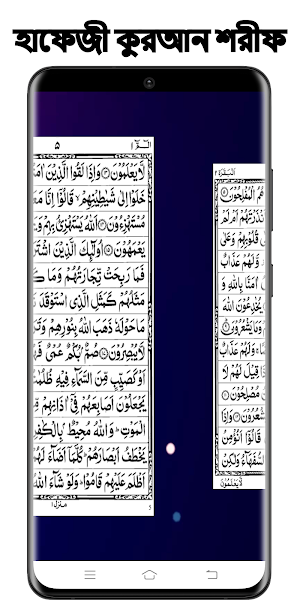 হাফেজী কুরআন শরীফ
الٓمّٓ ١
۵
لَّا يَعْلَمُوْنَ ۝ وَاِذَا لَقُوا الَّذِيْنَ
خَلَوْا اِلٰى شَيٰطِيْنِهِمْ ۙ قَالُوْٓا اِنَّا
مُسْتَهْزِءُوْنَ ۝ اَللّٰهُ يَسْتَهْزِئُ بِهِمْ
يَعْمَهُوْنَ ۝ اُولٰٓئِكَ الَّذِيْنَ
فَمَا رَبِحَتْ تِّجَارَتُهُمْ وَمَا
مَثَلُهُمْ كَمَثَلِ الَّذِى اسْتَوْقَدَ
مَا حَوْلَهٗ ذَهَبَ اللّٰهُ بِنُوْرِهِمْ
لَّا يُبْصِرُوْنَ ۝ صُمٌّۢ بُكْمٌ عُمْىٌ
اَوْ كَصَيِّبٍ مِّنَ السَّمَآءِ فِيْهِ
يَجْعَلُوْنَ اَصَابِعَهُمْ فِىْٓ اٰذَانِهِمْ
الْمَوْتِ ؕ وَاللّٰهُ مُحِيْطٌۢ
يَخْطَفُ اَبْصَارَهُمْ ؕ كُلَّمَآ اَضَآءَ
اَظْلَمَ عَلَيْهِمْ قَامُوْا ؕ وَلَوْ شَآءَ
منزل ١
البقرة ٢
هُمُ الْمُفْلِحُوْنَ
اَمْ لَمْ
قُلُوْبِهِمْ وَعَلٰى
وَّلَهُمْ عَذَابٌ
اٰمَنَّا بِاللّٰهِ
يُخٰدِعُوْنَ اللّٰهَ
وَمَا يَشْعُرُوْنَ
وَلَهُمْ عَذَابٌ
قِيْلَ لَهُمْ لَا
مُصْلِحُوْنَ
يَشْعُرُوْنَ ۝ وَاِذَا
قَالُوْٓا اَنُؤْمِنُ
السُّفَهَآءُ وَلٰكِنْ
لَّا يَعْلَمُوْنَ